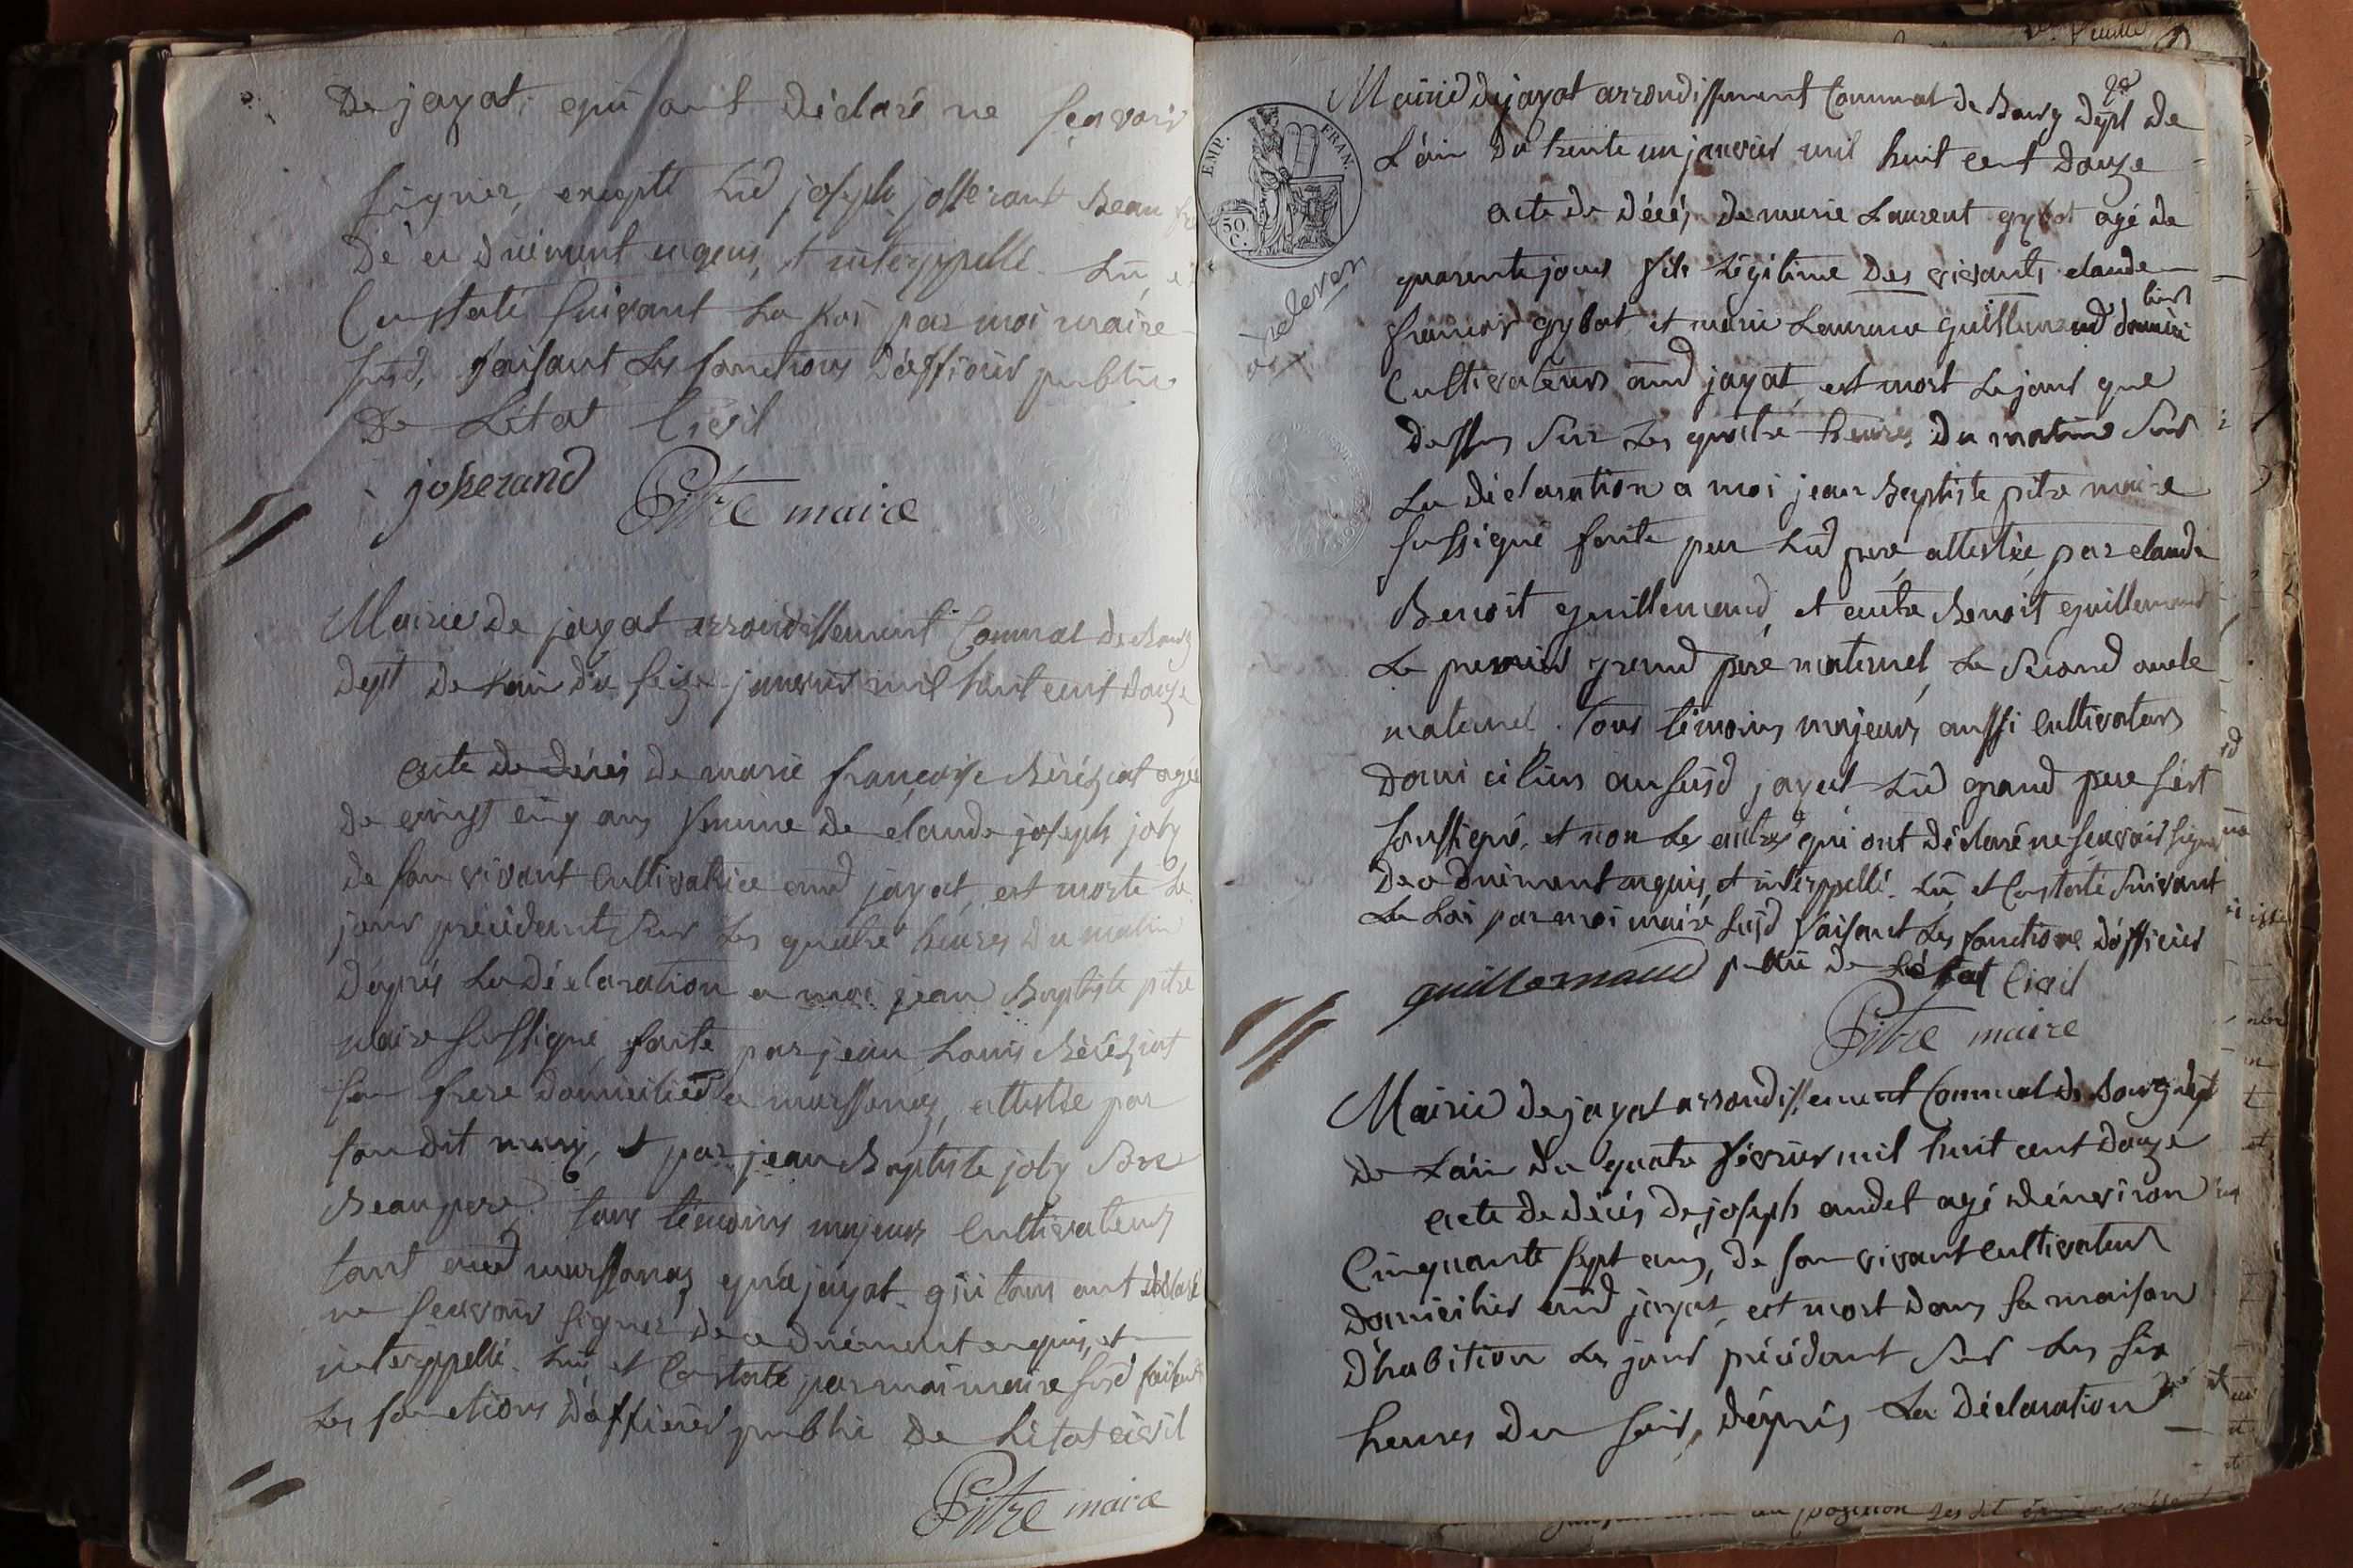 De jayat qui ont Déclaré ne scavoir
signer, excepté Lud joseph josserant Beau
De ce duement enquis, et interppellé. Lu, et
Constaté suivant La Loi par moi maire
susd, faisant Les fonctions D'officier public
De L'état Civil
josserand Pitre maire
Mairie De jayat arrondissement Communal De Bourg
Dept De L'ain du seize janvier mil huit cent Douze
acte De Décés De marie françoise Béréziat agée
De vingt cinq ans femme De claude joseph joly
De son vivant Cultivatrice aud jayat, est morte Le
jour précédant sur Les quatre heures Du matin
D'après La Déclaration a moi jean Baptiste pitre
maire sussigné faite par jean Louis Béréziat
son frere Domicilié a marsonas, attestée par
son dit mary, et par jean Baptiste joly Son
Beaupere. tous témoins majeurs Cultivateurs
tant aud marsonas qu'a jayat. qui tous ont Déclaré
ne scavoir signer De ce duement enquis, et
interppellé. Lu, et Constaté par moi maire susd faisant
Les fonctions D'officier public De L'état civil
Pitre maire
Mairie De jayat arrondissement Communal De Bourg Dept De
L'ain Du trente un janvier mil huit cent Douze
EMP. FRAN.
50 C.
a relever
acte De Décés De marie Laurent gybot agé De
quarente jours fils Légitime Des vivants claude
françois gybot et marie Laurence guillemaud domici
liers
Cultivateurs aud jayat, est mort Le jour que
Dessus sur Les quatre heures Du matin sur
La Déclaration a moi jean Baptiste pitre maire
sussigné faite par Lud pere, attestée, par claude
Benoit guillemaud, et autre Benoit guillemaud
Le premier grand pere maternel, Le Second oncle
maternel. tous témoins majeurs aussi Cultivateurs
Domiciliers au susd jayat Lud grand pere s'est
soussigné, et non Les autres qui ont Déclaré ne scavoir signer
De ce duement enquis, et interppellé. Lu, et Constaté suivant
La Loi par moi maire susd faisant Les fonctions D'officier
guillemaud public De L'état Civil
Pitre maire
Mairie De jayat arrondissement Communal De Bourg Dept
De L'ain Du quatre février mil huit cent Douze
acte De Décés De joseph audet agé D'environ
Cinquante sept ans, De son vivant Cultivateur
Domicilier aud jayat, est mort Dans sa maison
D'habition Le jour précédant sur Les six
heures Du soir, D'après La Déclaration